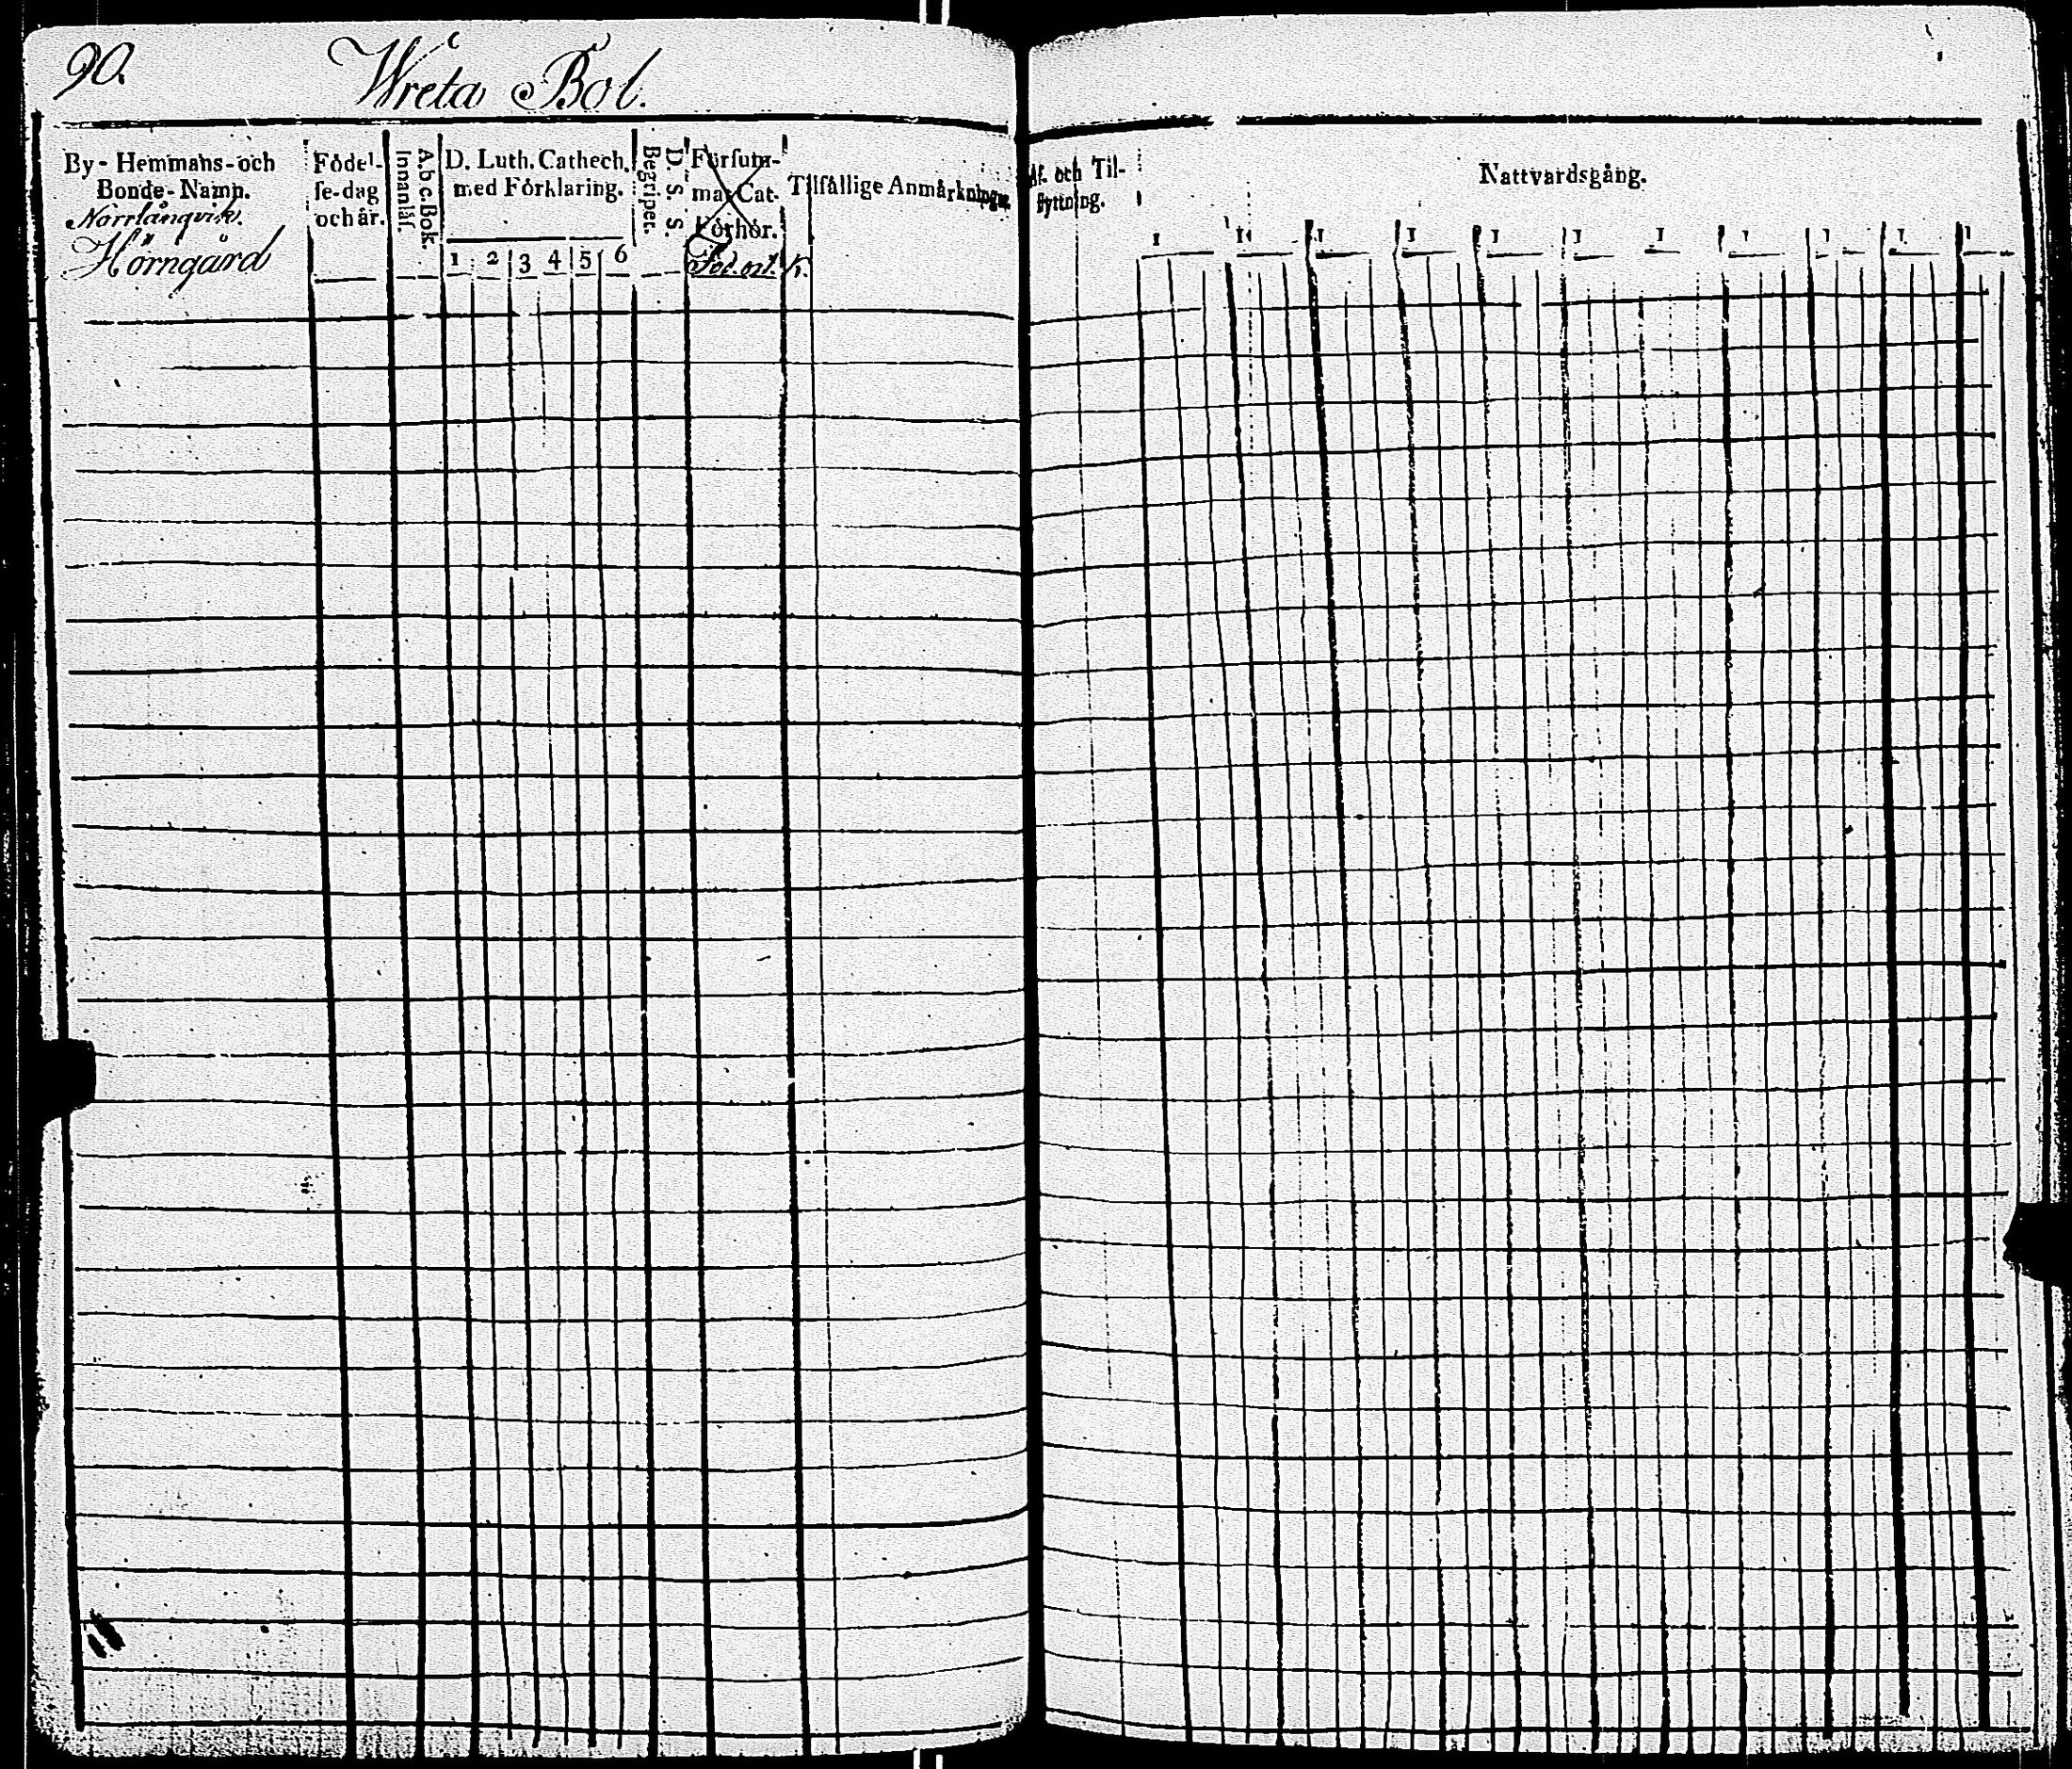 90.
Wreta Bol.
By-Hemmans-och
Bonde-Namn.
Norrlångvik.
Hörngård
Födel-
se-dag
och år.
Innanläs.
A.b.c. Bok.
D. Luth. Cathech.
med Förklaring.
1 2 3 4 5 6
Begriper.
D. S. S.
Försum-
mar Cat.
Förhör.
Föd. ort. K.
Tilfällige Anmärkningar.
Af- och Til-
flyttning.
Nattvardsgång.
1 1 1 1 1 1 1 1 1 1 1